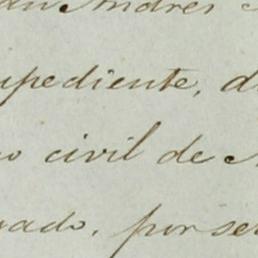 Andres
expediente, d
o civil de
sado, por ser